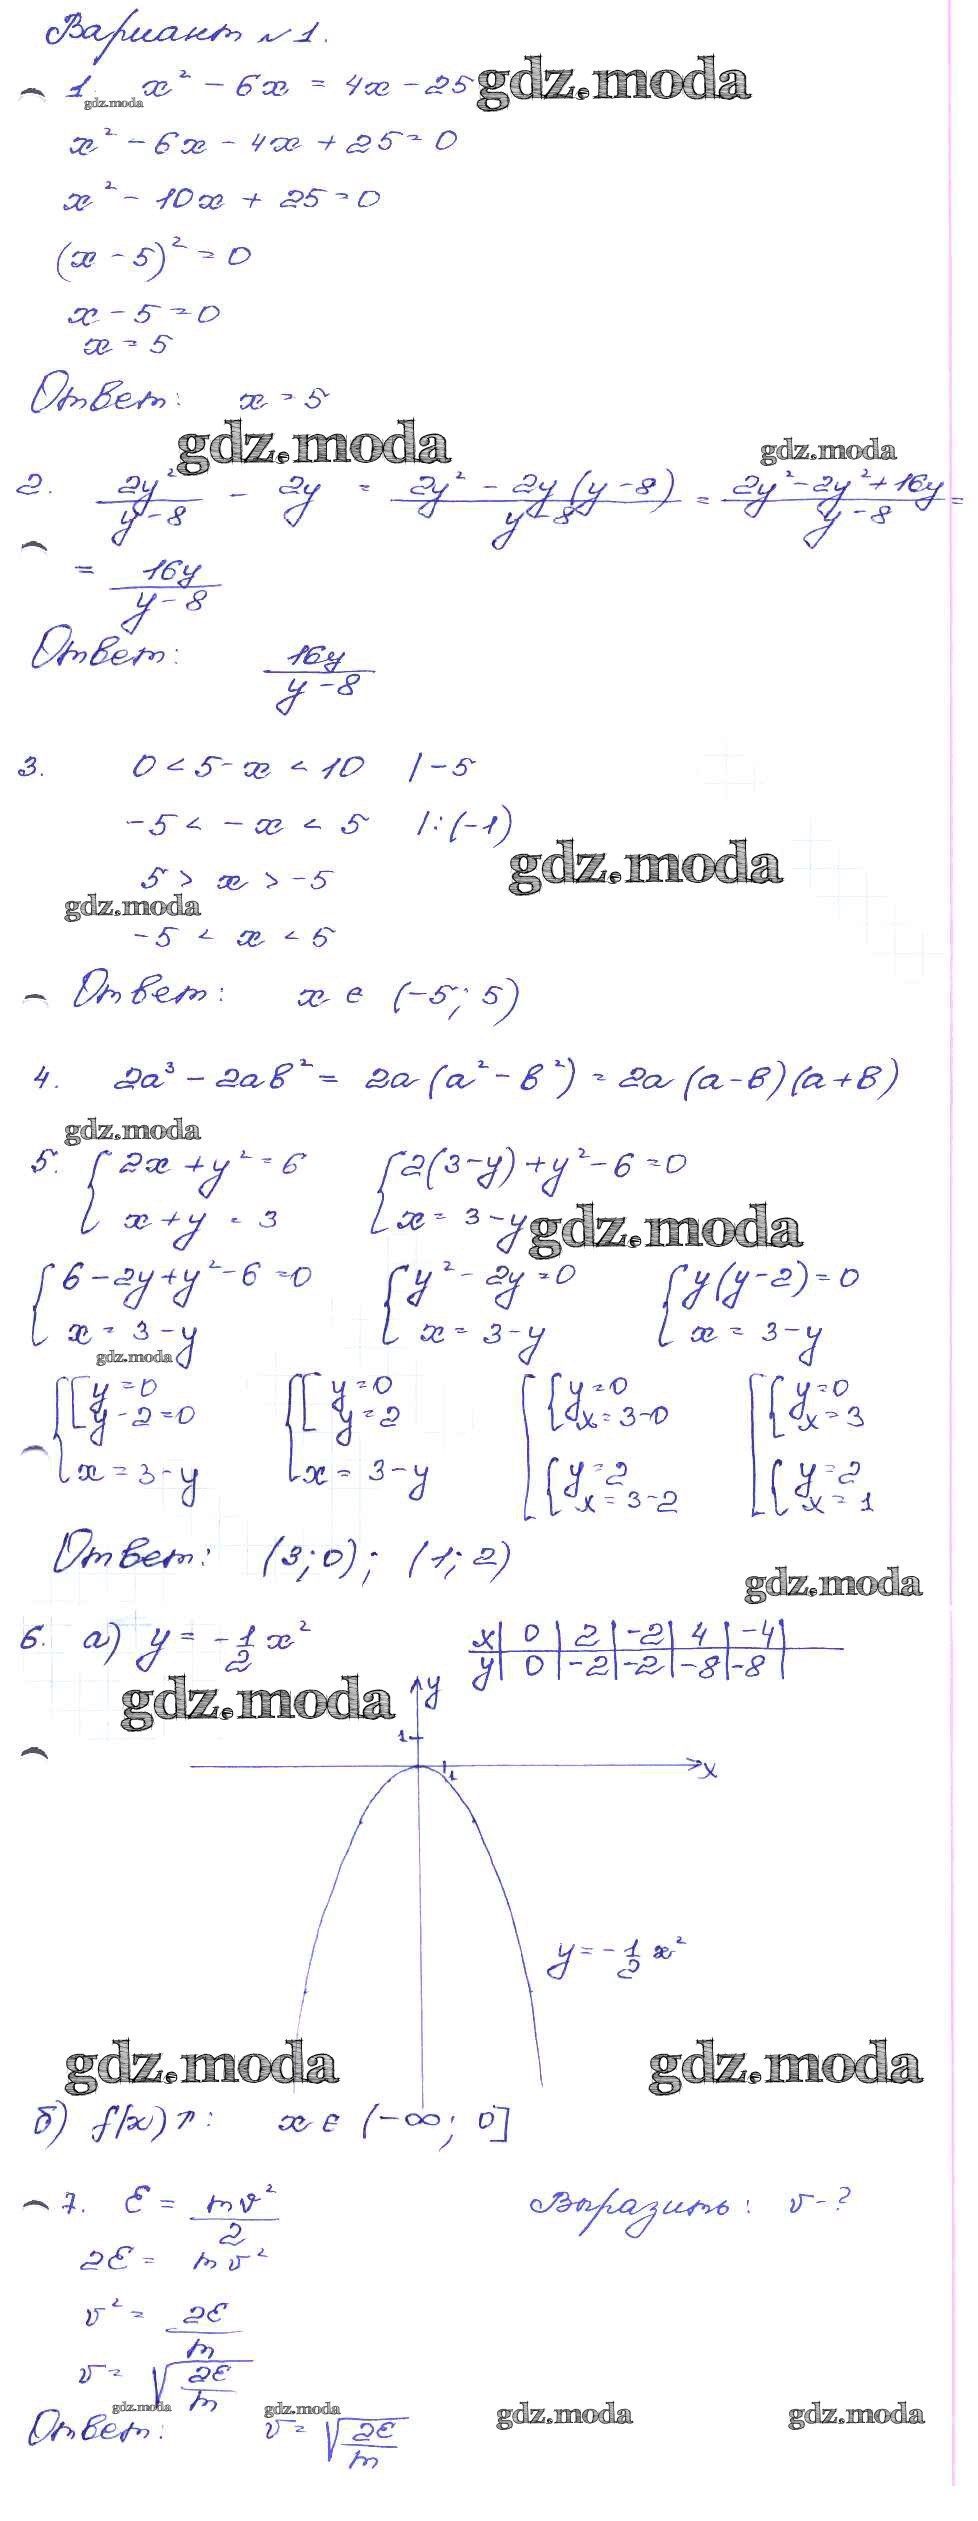 Вариант №1.
1. x² - 6x = 4x - 25 gdz.moda
gdz.moda
x² - 6x - 4x + 25 = 0
x² - 10x + 25 = 0
(x - 5)² = 0
x - 5 = 0
x = 5
Ответ: x = 5
gdz.moda gdz.moda
2. 2y²/(y-8) - 2y = (2y² - 2y(y-8))/(y-8) = (2y² - 2y² + 16y)/(y-8) =
= 16y/(y-8)
Ответ: 16y/(y-8)
3. 0 < 5 - x < 10 | -5
-5 < -x < 5 | :(-1)
gdz.moda
5 > x > -5
gdz.moda
-5 < x < 5
Ответ: x ∈ (-5; 5)
4. 2a³ - 2ab² = 2a(a² - b²) = 2a(a-b)(a+b)
gdz.moda
5. { 2x + y² = 6 { 2(3-y) + y² - 6 = 0
x + y = 3 x = 3 - y gdz.moda
{ 6 - 2y + y² - 6 = 0 { y² - 2y = 0 { y(y-2) = 0
x = 3 - y x = 3 - y x = 3 - y
gdz.moda
{ [ y = 0 { [ y = 0 [ { y = 0 [ { y = 0
y - 2 = 0 y = 2 x = 3-0 x = 3
x = 3 - y x = 3 - y { y = 2 { y = 2
x = 3-2 x = 1
Ответ: (3; 0); (1; 2)
gdz.moda
6. а) y = -1/2 x² x | 0 | 2 | -2 | 4 | -4 |
y | 0 | -2 | -2 | -8 | -8 |
gdz.moda y
1
x
1
y = -1/2 x²
gdz.moda gdz.moda
б) f(x)↗: x ∈ (-∞; 0]
7. E = mv²/2 Выразить: v - ?
2E = mv²
v² = 2E/m
v = √(2E/m)
gdz.moda gdz.moda gdz.moda gdz.moda
Ответ: v = √(2E/m)